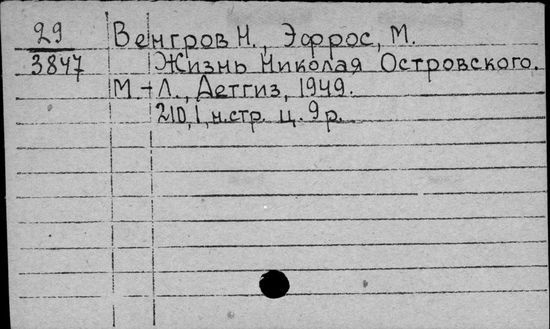 29 Венгров Н., Эфрос, М.
3847 Жизнь Николая Островского.
М.-Л., Детгиз, 1949.
210,1, н.стр. ц. 9 р.